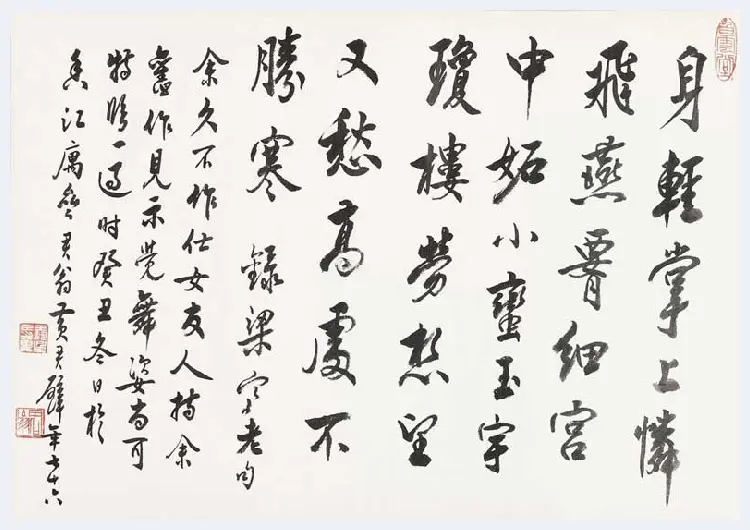 身輕掌上憐
飛燕腰細宮
中妬小蠻玉宇
瓊樓勞想望
又愁高處不
勝寒 錄梁老句
余久不作仕女友人持余
舊作見示覺舞姿尚可
特臨一過时癸丑冬日於
香江寓齋君翁黃君璧年七十六